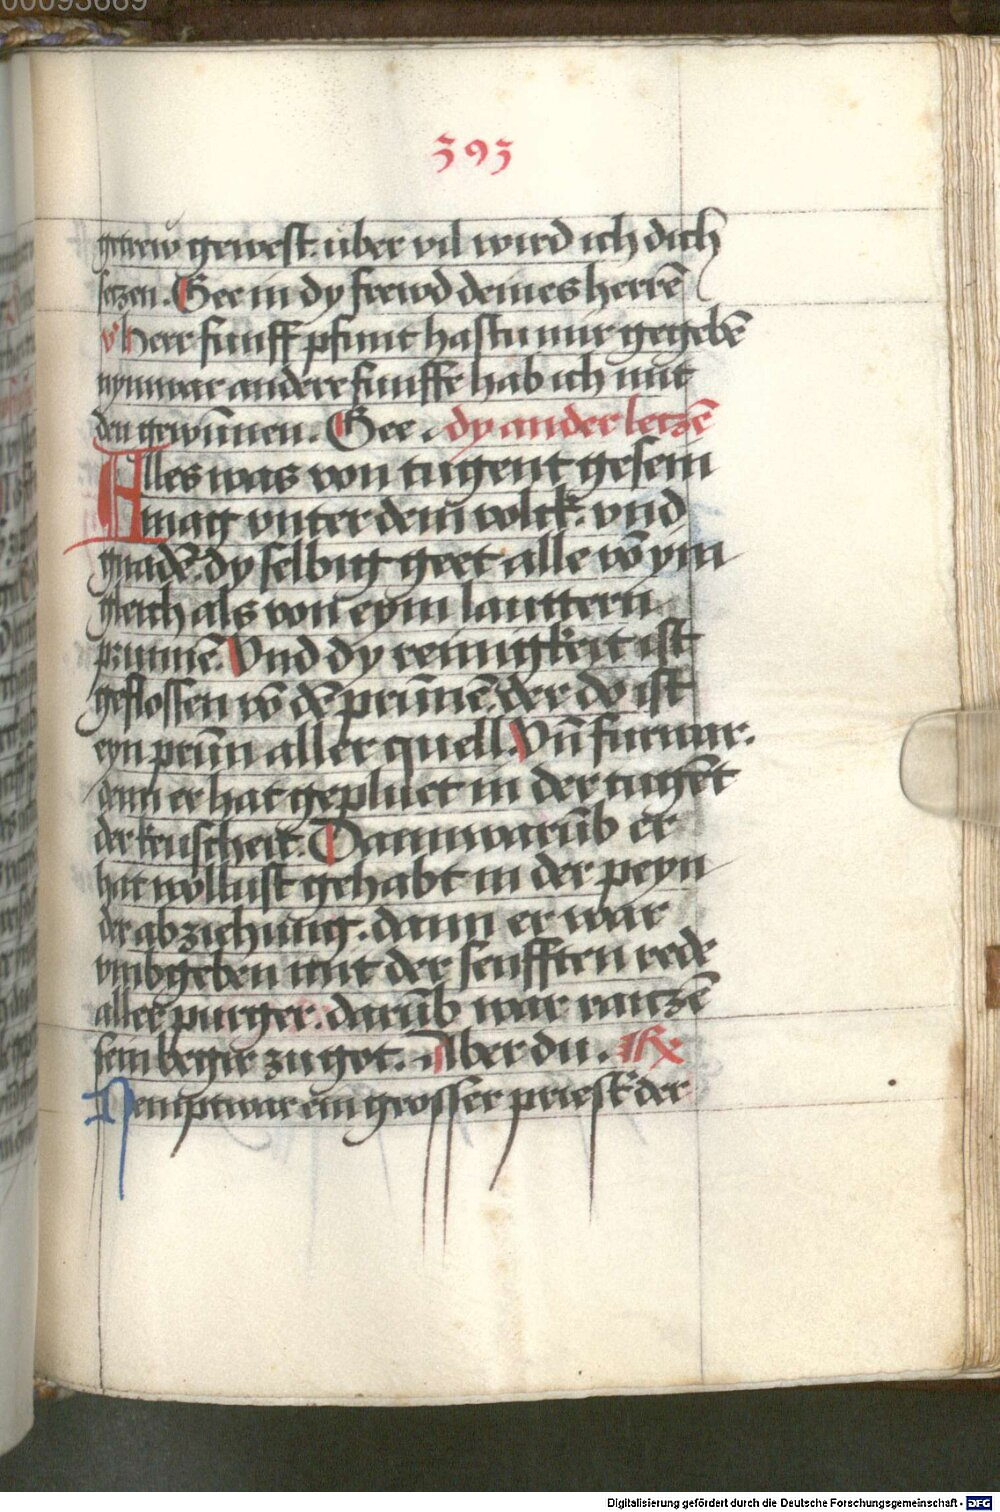 00093669
393
getrew gewest. uber vil wird ich dich
setzen. Gee in dy frewd deines herrē
v̾ Herr funff pfunt hastu mir gegebē
nymwar andere funffe hab ich mit
den gewūnen. Gee. dy ander letzē
Alles was von tugent gesein
mag vnter dem volck. vnd
gnadē. dy selbig geet alle vō ym
gleich als von eym lauttern
prunnē. Vnd dy reinigkeit ist
geflossen vō dē prūnē. der do ist
eyn prūn aller quell. Vn̄ furwar.
dann er hat gepluet in der tugēt
der keuscheit. Dannwarūb er
hat wollust gehabt in der peyn
der abziehung. dann er war
vmbgeben mit der senfften rede
aller purger. darūb war rantzē
sein begir zu got. Aber du. Rx
Nempt war ein grosser priest̾ der
Digitalisierung gefördert durch die Deutsche Forschungsgemeinschaft - DFG